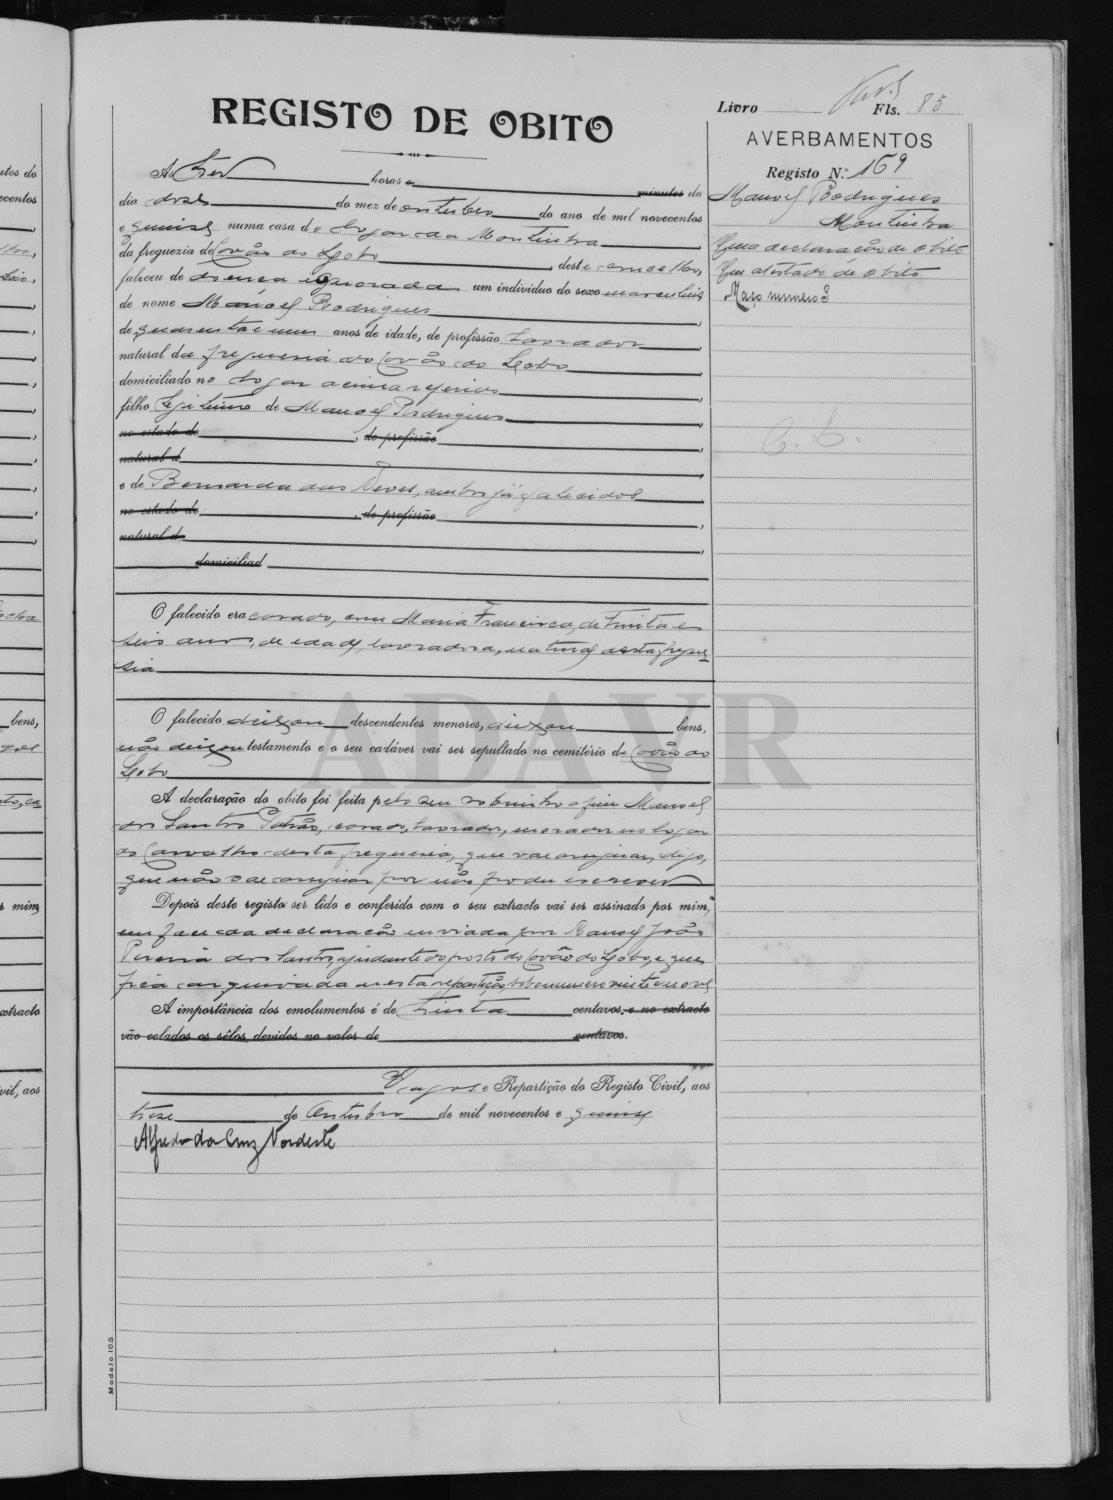 Livro Fls. 85
REGISTO DE OBITO
AVERBAMENTOS
Registo N.º 169
Manoel Rodrigues
Montinha
Uma declaração de obito
Um atestado de obito
Maço numero 3
C. L.
Ás tres horas e minutos do
dia dose do mez de outubro do ano de mil novecentos
e quinse numa casa do logar da
da freguezia de Covão do Lobo, deste concelho,
faleceu de doença ignorada um individuo do sexo masculino
de nome Manoel Rodrigues,
de quarenta e um anos de idade, de profissão lavrador,
natural da freguesia do Covão do Lobo,
domiciliado no logar acima referido,
filho legitimo de Manoel Rodrigues,
no estado de, de profissão,
natural d,
e de Bernarda das Neves, ambos já falecidos,
no estado de, de profissão,
natural d,
domiciliad
O falecido era casado, com Maria Francisca, de trinta e
seis anos, de edade, lavradora, natural desta fregue-
sia
O falecido deixou descendentes menores, deixou bens,
não deixou testamento e o seu cadáver vai ser sepultado no cemitério de Covão do
Lobo
A declaração do obito foi feita pelo seu sobrinho Manoel
dos Santos casado, lavrador, morador no logar
do Carvalho desta freguesia, que vae assignar, digo,
que não vae assignar por não poder escrever
Depois deste registo ser lido e conferido com o seu extracto vai ser assinado por mim,
em face da declaração enviada por Manoel João
Pereira dos Santos, ajudante do posto do Covão do Lobo, e que
fica arquivada nesta repartição sob o numero
A importância dos emolumentos é de trinta centavos, e no extracto
vão colados os sêlos devidos no valor de centavos.
Vagos e Repartição do Registo Civil, aos
trese de Outubro de mil novecentos e quinse
Alfredo da Cruz Nordeste
Modelo 105
ADAVR